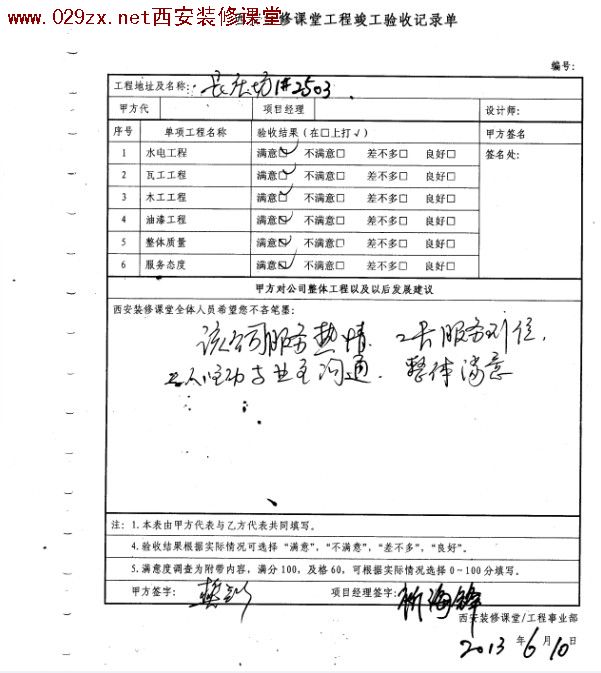 www.029zx.net西安装修课堂
修课堂工程竣工验收记录单
编号：
工程地址及名称： 1#2503
甲方代 项目经理 设计师：
序号 单项工程名称 验收结果（在□上打√） 甲方签名
1 水电工程 满意☑ 不满意□ 差不多□ 良好□ 签名处：
2 瓦工工程 满意☑ 不满意□ 差不多□ 良好□
3 木工工程 满意☑ 不满意□ 差不多□ 良好□
4 油漆工程 满意☑ 不满意□ 差不多□ 良好□
5 整体质量 满意☑ 不满意□ 差不多□ 良好□
6 服务态度 满意☑ 不满意□ 差不多□ 良好□
甲方对公司整体工程以及以后发展建议
西安装修课堂全体人员希望您不吝笔墨：
该公司服务热情、工长服务到位，
工人主动与业主沟通、整体满意
注：1.本表由甲方代表与乙方代表共同填写。
4.验收结果根据实际情况可选择“满意”，“不满意”，“差不多”，“良好”。
5.满意度调查为附带内容，满分100，及格60，可根据实际情况选择0~100分填写。
甲方签字： 项目经理签字：
西安装修课堂/工程事业部
2013年6月10日